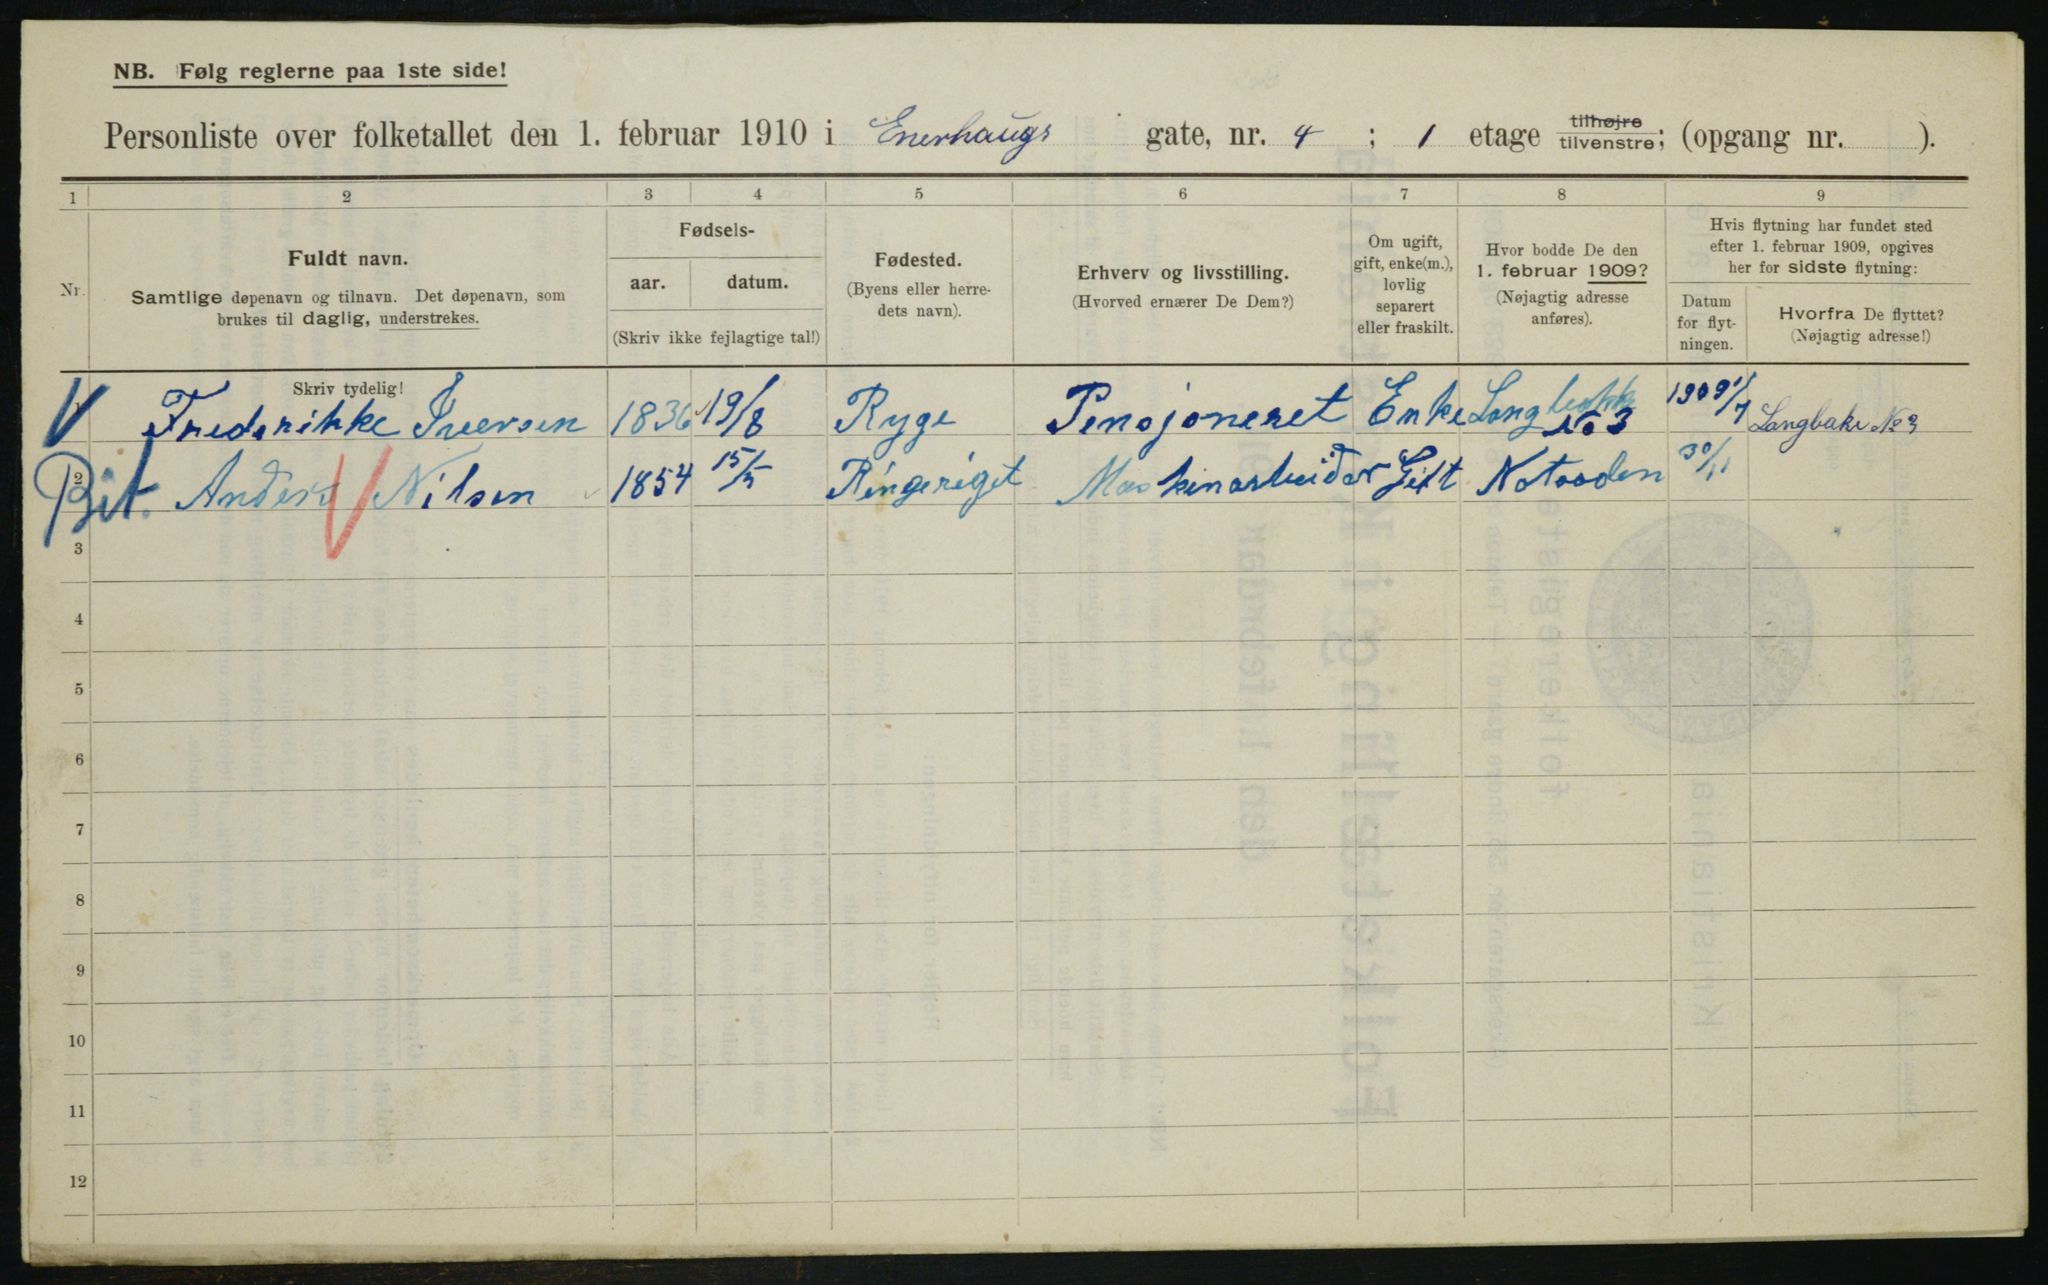 NB. Følg reglerne paa 1ste side!
Personliste over folketallet den 1. februar 1910 i Enerhaugs gate, nr. 4 ; 1 etage tilhøjre tilvenstre; (opgang nr. ).
1 2 3 4 5 6 7 8 9
Nr.
Fuldt navn.
Samtlige døpenavn og tilnavn. Det døpenavn, som
brukes til daglig, understrekes.
Skriv tydelig!
Fødsels-
aar. datum.
(Skriv ikke fejlagtige tal!)
Fødested.
(Byens eller herre-
dets navn).
Erhverv og livsstilling.
(Hvorved ernærer De Dem?)
Om ugift,
gift, enke(m.),
lovlig
separert
eller fraskilt.
Hvor bodde De den
1. februar 1909?
(Nøjagtig adresse
anføres).
Hvis flytning har fundet sted
efter 1. februar 1909, opgives
her for sidste flytning:
Datum
for flyt-
ningen.
Hvorfra De flyttet?
(Nøjagtig adresse!)
1 Frederikke Iversen 1836 19/8 Rygge Pensjoneret Enke No 3 1909 1/7 Langbake No 3
2 Bit. Anders Nilsen 1854 15/5 Ringeriget Maskinarbeider Gift Notodden 30/11
3
4
5
6
7
8
9
10
11
12